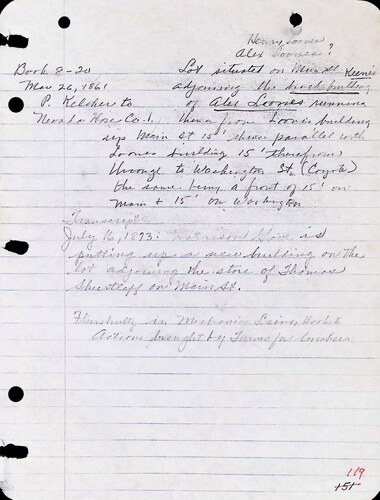 Henry Loones
Alex Loones?
Book 8-20
Mar 26, 1861
P. Kelsher to
Nevada Hose Co. 1
Lot situated on Main St
Keenis
adjoining the building
of Alex Loones running
thence from Loones building
up Main St 15' thence parallel with
Loones building 15' therefrom
through to Washington St. (Coyote)
the same being a front of 15' on
Main & 15' on Washington
Transcript:
July 16, 1873: Garrison Gove is
putting up a new building on the
lot adjoining the store of Thomas
Shurtleff on Main St.
in Mechanics Liens, Book &
Actions brought by Turner for lumber
119
+5+